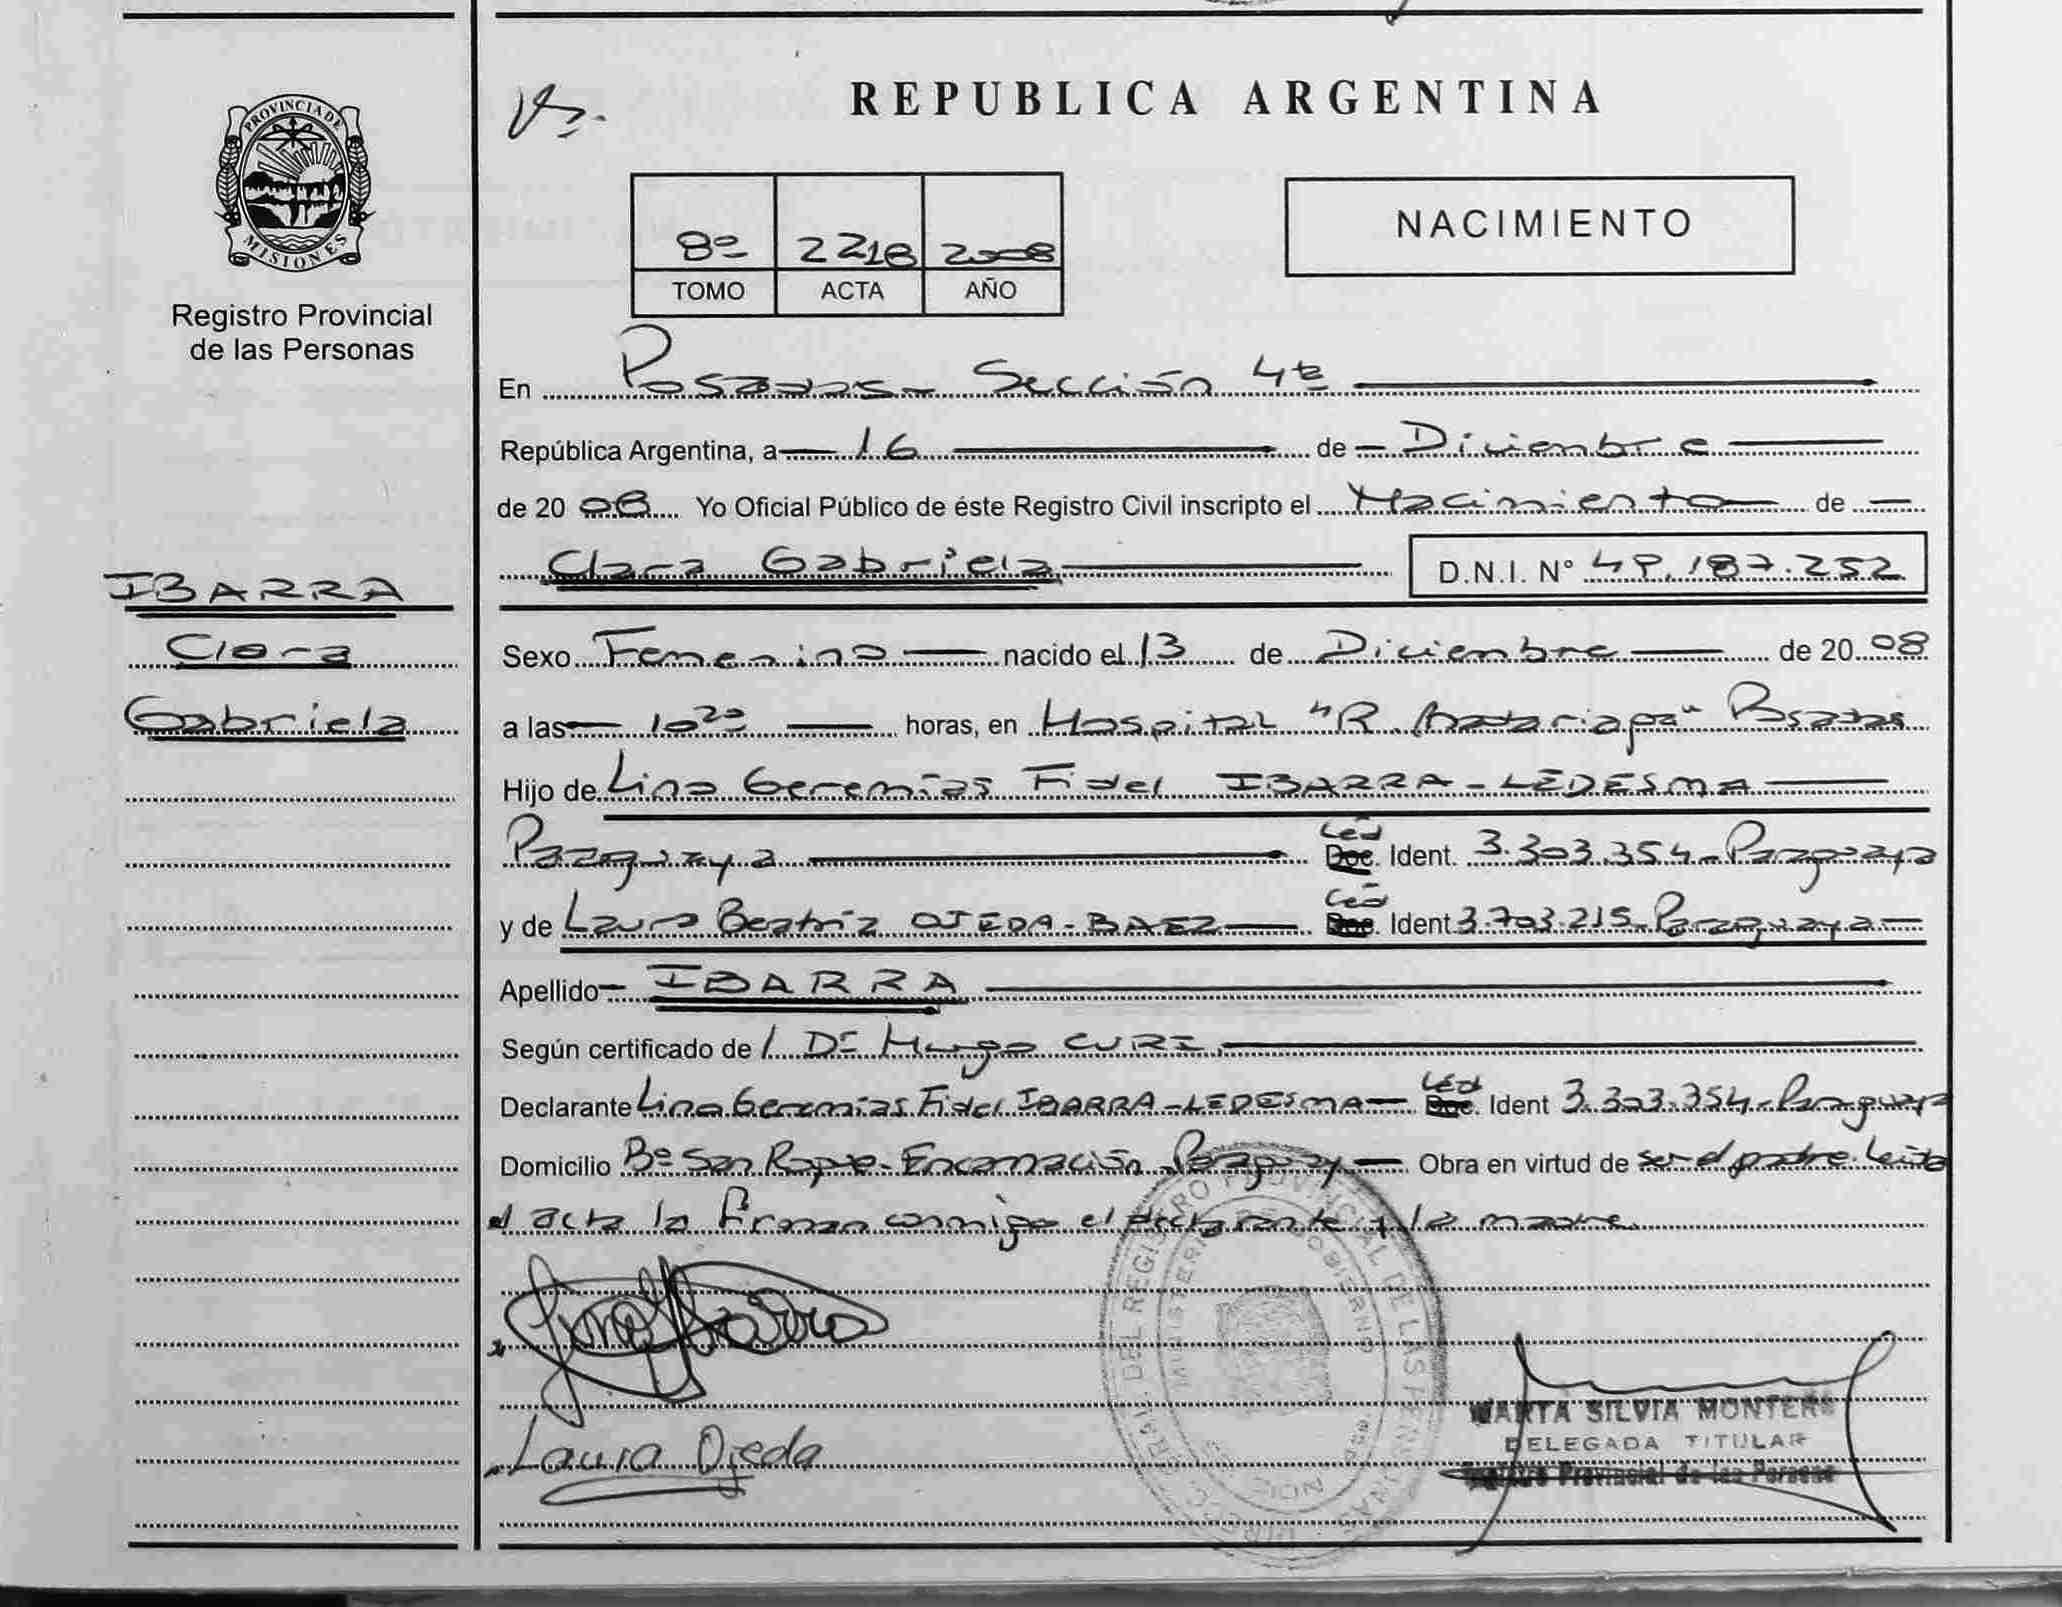 PROVINCIA DE
MISIONES
Registro Provincial
de las Personas
IBARRA
Clara
Gabriela
REPUBLICA ARGENTINA
8º 2218 2008
TOMO ACTA AÑO
NACIMIENTO
En Posadas - Sección 4ta
República Argentina, a 16 de Diciembre
de 20 08 Yo Oficial Público de éste Registro Civil inscripto el Nacimiento de
Clara Gabriela D.N.I. Nº 49.187.252
Sexo Femenino nacido el 13 de Diciembre de 20 08
a las 10 horas, en Hospital "R. Madariaga" Posadas
Hijo de Lino Geremías Fidel IBARRA - LEDESMA
Paraguaya Céd Doc. Ident. 3.303.354 - Paraguaya
y de Laura Beatriz OJEDA - BAEZ Céd Doc. Ident 3.703.215 - Paraguaya
Apellido IBARRA
Según certificado de Dr Hugo CURI
Declarante Lino Geremías Fidel IBARRA - LEDESMA Céd Doc. Ident 3.303.354 - Paraguaya
Domicilio Bº San Roque - Encarnación - Paraguay Obra en virtud de ser el padre. Leída
el acta la firman conmigo el declarante y la madre.
Laura Ojeda
MARTA SILVIA MONTERO
DELEGADA TITULAR
Registro Provincial de las Personas